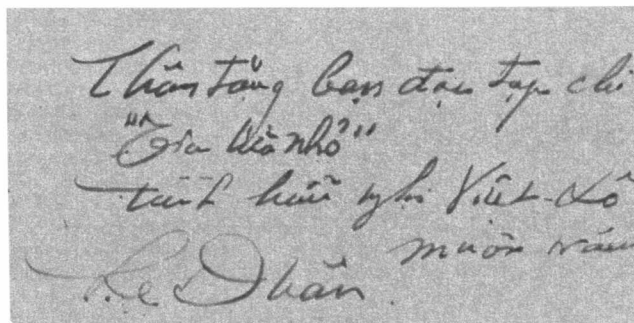 Thân tặng bạn đọc tạp chí
"Tia lửa nhỏ"
tình hữu nghị Việt-Xô
muôn năm
Lê Duẩn.